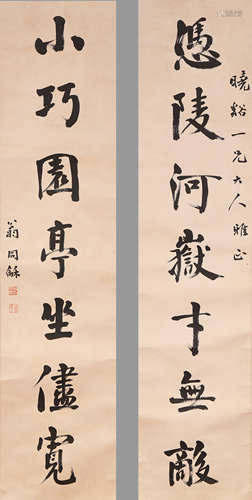 憑陵河嶽才無敵
曉谿一兄大人雅正
小巧園亭坐儘寬
翁同龢